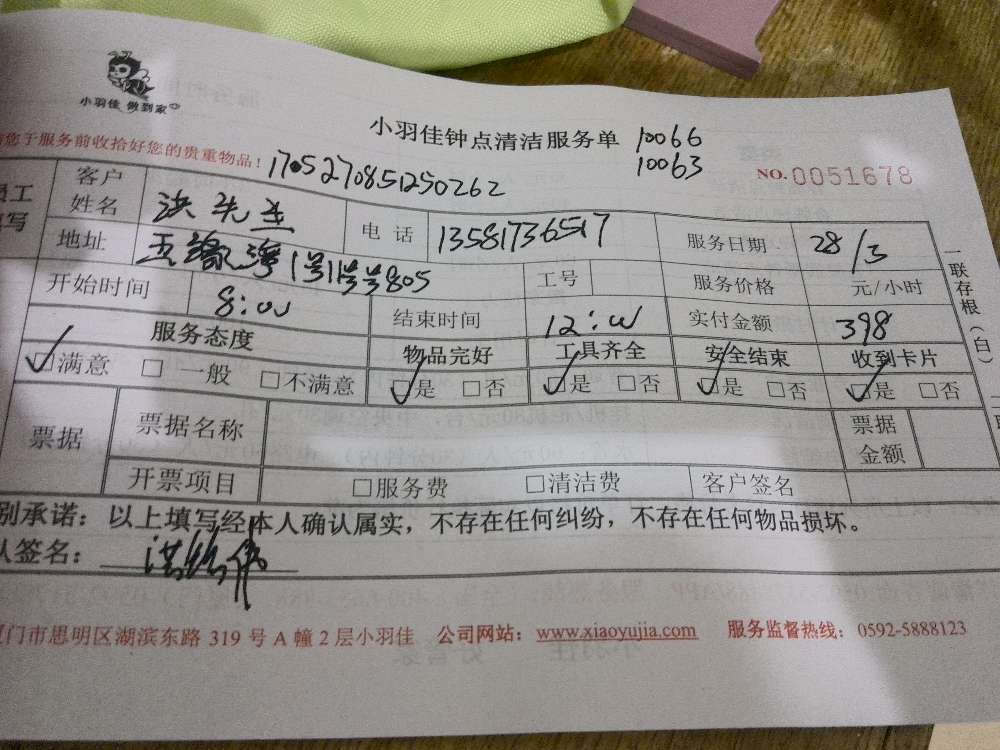 小羽佳 做到家
小羽佳钟点清洁服务单 10066
10063
您于服务前收拾好您的贵重物品！ 1705270851250262 NO.0051678
客户姓名 洪先生 电话 13581736517 服务日期 28/3
地址 1号 805 工号 服务价格 元/小时
开始时间 8:00 结束时间 12:00 实付金额 398
服务态度 物品完好 工具齐全 安全结束 收到卡片
☑满意 □一般 □不满意 ☑是 □否 ☑是 □否 ☑是 □否 ☑是 □否
票据 票据名称 票据金额
开票项目 □服务费 □清洁费 客户签名
别承诺：以上填写经本人确认属实，不存在任何纠纷，不存在任何物品损坏。
签名：
门市思明区湖滨东路 319 号 A 幢 2 层小羽佳 公司网站：www.xiaoyujia.com 服务监督热线：0592-5888123
一联存根（白）